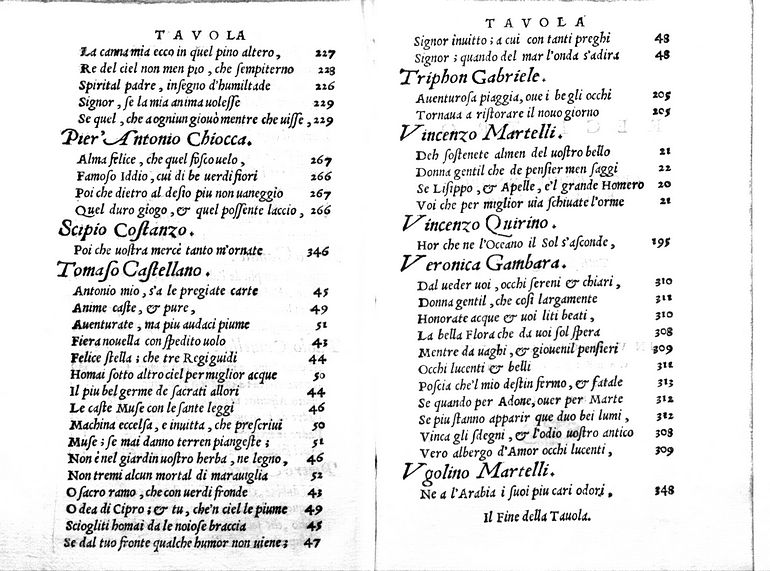 TAVOLA
La canna mia ecco in quel pino altero, 227
Re del ciel non men pio, che sempiterno 228
Spirital padre, insegno d'humiltade 226
Signor, se la mia anima uolesse 229
Se quel, che a ogniun giouò mentre che uisse, 229
Pier' Antonio Chiocca.
Alma felice, che quel fosco uelo, 267
Famoso Iddio, cui di be uerdi fiori 266
Poi che dietro al desio piu non uaneggio 267
Quel duro giogo, & quel possente laccio, 266
Scipio Costanzo.
Poi che uostra mercè tanto m'ornate 346
Tomaso Castellano.
Antonio mio, s'a le pregiate carte 45
Anime caste, & pure, 49
Auenturate, ma piu audaci piume 51
Fiera nouella con spedito uolo 43
Felice stella; che tre Regi guidi 44
Homai sotto altro ciel per miglior acque 50
Il piu bel germe de sacrati allori 44
Le caste Muse con le sante leggi 46
Machina eccelsa, e inuitta, che prescriui 50
Muse; se mai danno terren piangeste; 51
Non è nel giardin uostro herba, ne legno, 46
Non tremi alcun mortal di marauiglia 52
O sacro ramo, che con uerdi fronde 43
O dea di Cipro; & tu, che'n ciel le piume 49
Sciogliti homai da le noiose braccia 45
Se dal tuo fronte qualche humor non uiene; 47
TAVOLA
Signor inuitto; a cui con tanti preghi 48
Signor; quando del mar l'onda s'adira 48
Triphon Gabriele.
Auenturosa piaggia, oue i begli occhi 205
Tornaua a ristorare il nouo giorno 205
Vincenzo Martelli.
Deh sostenete almen del uostro bello 21
Donna gentil che de pensier men saggi 22
Se Lisippo, & Apelle, e'l grande Homero 20
Voi che per miglior uia schiuate l'orme 21
Vincenzo Quirino.
Hor che ne l'Oceano il Sol s'asconde, 195
Veronica Gambara.
Dal ueder uoi, occhi sereni & chiari, 310
Donna gentil, che così largamente 311
Honorate acque & uoi liti beati, 310
La bella Flora che da uoi sol spera 308
Mentre da uaghi, & giouenil pensieri 309
Occhi lucenti & belli 311
Poscia che'l mio destin fermo, & fatale 313
Se quando per Adone, ouer per Marte 312
Se piu stanno apparir que duo bei lumi, 312
Vinca gli sdegni, & l'odio uostro antico 308
Vero albergo d'Amor occhi lucenti, 309
Vgolino Martelli.
Ne a l'Arabia i suoi piu cari odori, 348
Il Fine della Tauola.